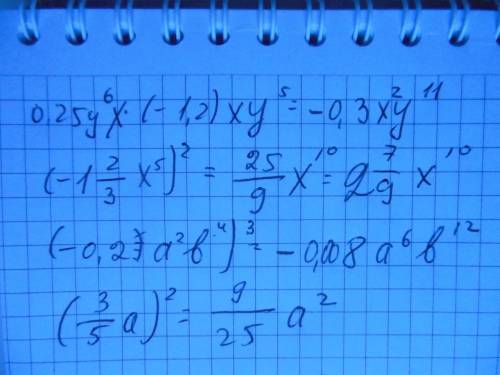 0,25y⁶x·(-1,2)xy⁵=-0,3x²y¹¹
(-1 2/3 x⁵)² = 25/9 x¹⁰ = 2 7/9 x¹⁰
(-0,2 a²b⁴)³ = -0,008 a⁶ b¹²
(3/5 a)² = 9/25 a²